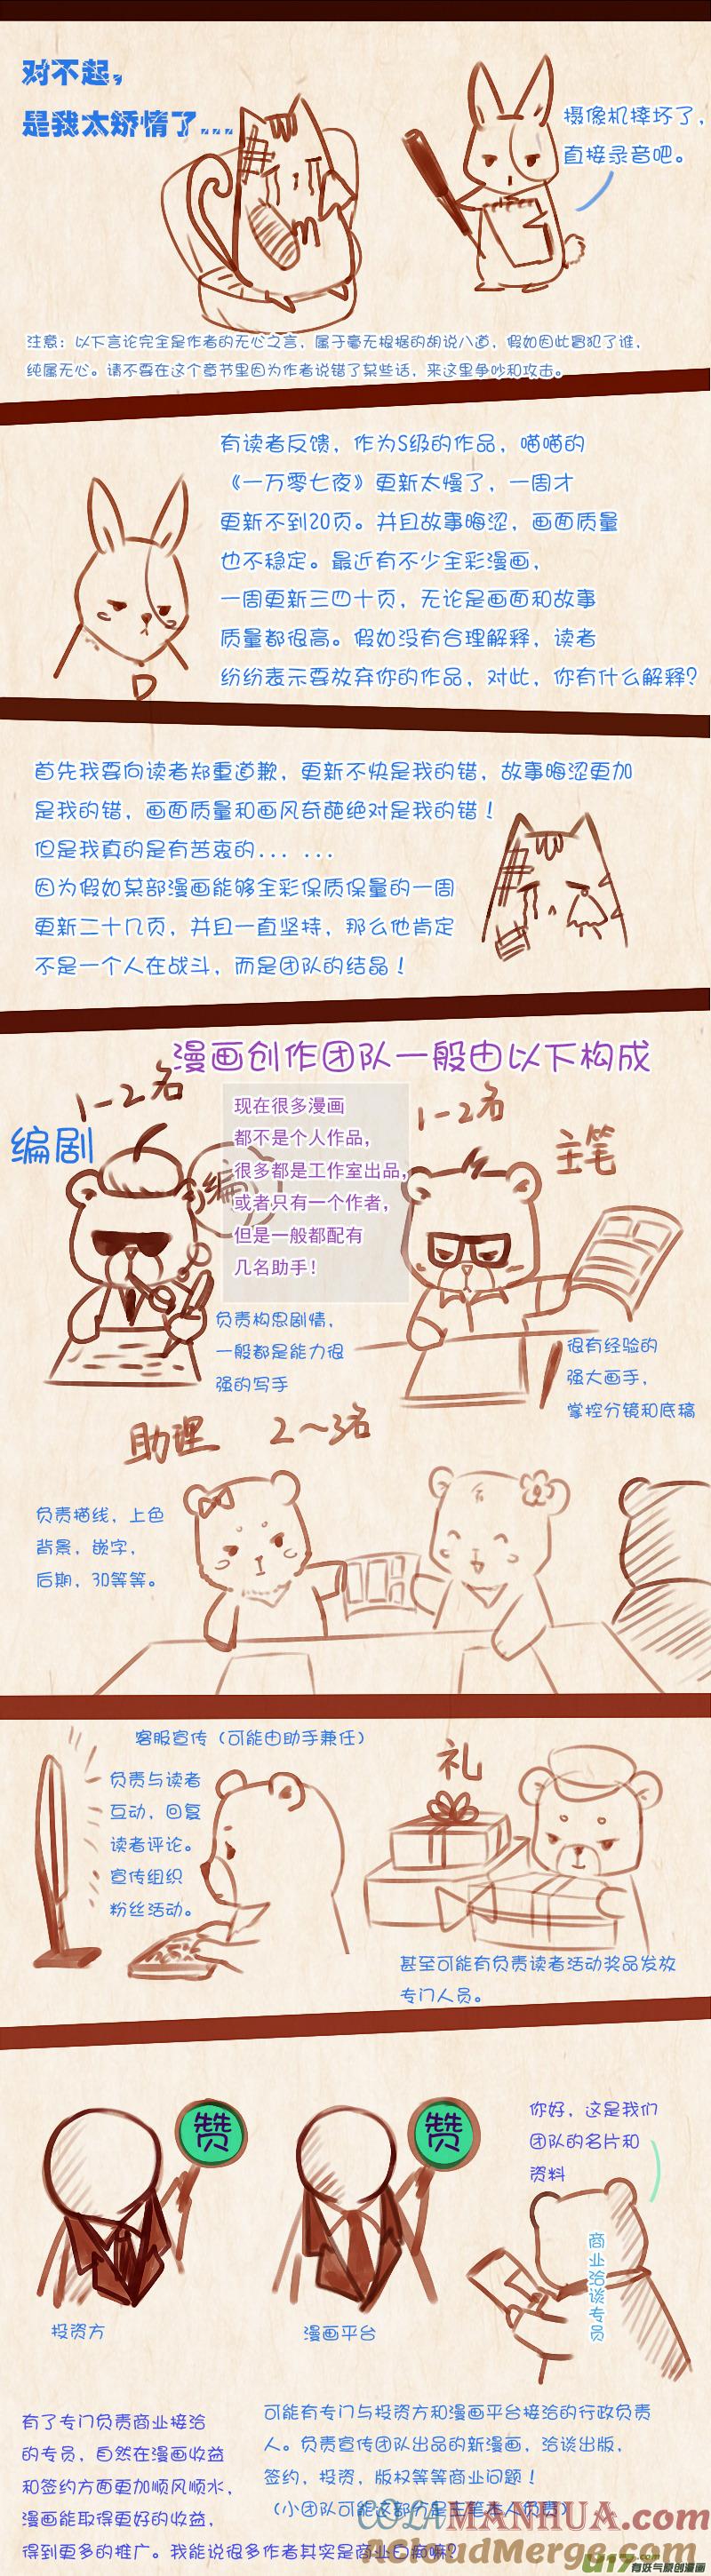 对不起，
是我太矫情了...
摄像机摔坏了，
直接录音吧。
注意：以下言论完全是作者的无心之言，属于毫无根据的胡说八道，假如因此冒犯了谁，
纯属无心。请不要在这个章节里因为作者说错了某些话，来这里争吵和攻击。
有读者反馈，作为S级的作品，喵喵的
《一万零七夜》更新太慢了，一周才
更新不到20页。并且故事晦涩，画面质量
也不稳定。最近有不少全彩漫画，
一周更新三四十页，无论是画面和故事
质量都很高。假如没有合理解释，读者
纷纷表示要放弃你的作品，对此，你有什么解释？
首先我要向读者郑重道歉，更新不快是我的错，故事晦涩更加
是我的错，画面质量和画风奇葩绝对是我的错！
但是我真的是有苦衷的... ...
因为假如某部漫画能够全彩保质保量的一周
更新二十几页，并且一直坚持，那么他肯定
不是一个人在战斗，而是团队的结晶！
漫画创作团队一般由以下构成
1-2名
编剧
编
现在很多漫画
都不是个人作品，
很多都是工作室出品，
或者只有一个作者，
但是一般都配有
几名助手！
1-2名
主笔
负责构思剧情，
一般都是能力很
强的写手
很有经验的
强大画手，
掌控分镜和底稿
助理 2～3名
负责描线，上色
背景，嵌字，
后期，3D等等。
客服宣传（可能由助手兼任）
负责与读者
互动，回复
读者评论。
宣传组织
粉丝活动。
礼
甚至可能有负责读者活动奖品发放
专门人员。
赞
赞
你好，这是我们
团队的名片和
资料
商业洽谈专员
投资方
漫画平台
有了专门负责商业接洽
的专员，自然在漫画收益
和签约方面更加顺风顺水，
漫画能取得更好的收益，
得到更多的推广。我能说很多作者其实是商业白痴嘛？
可能有专门与投资方和漫画平台接洽的行政负责
人。负责宣传团队出品的新漫画，洽谈出版，
签约，投资，版权等等商业问题！
（小团队可能这部分是主笔本人负责）
COLAMANHUA.com
AcloudMerge.com
u17.com
有妖气原创漫画